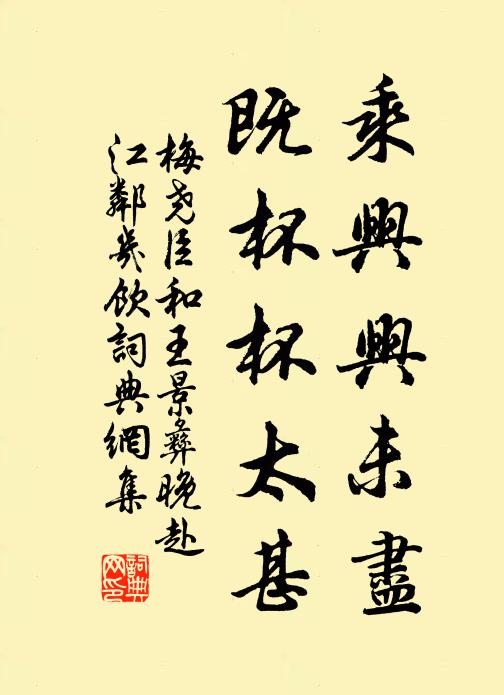 乘興興未盡
既杯杯太甚
梅堯臣和王景彞晚赴
江鄰幾飲詞典網集
詞典
网印